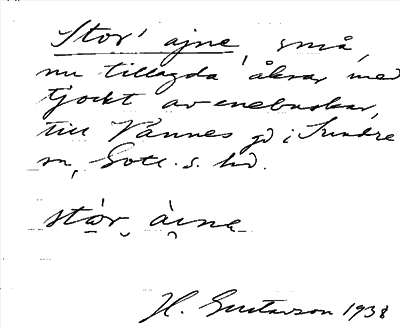 Stor' ajne, små,
nu tillagda åkrar med
tjockt av enebuskar,
till Vännes gd i Sundre
sn, Gotl. s. hd.
stọr, àịna
H. Gustavson 1938